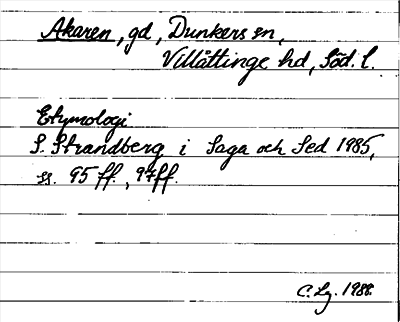 Akaren, gd, Dunkers sn,
Villåttinge hd, Söd. l.
Etymologi
S. Strandberg i Saga och Sed 1985,
ss. 95 ff., 97 ff.
C. Lg. 1988.